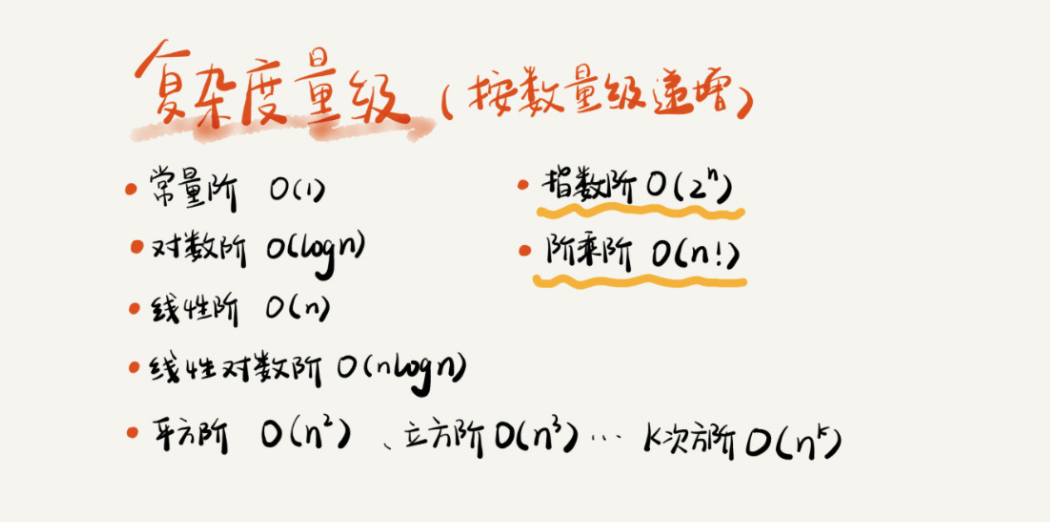 复杂度量级（按数量级递增）
• 常量阶 O(1)
• 对数阶 O(logn)
• 线性阶 O(n)
• 线性对数阶 O(nlogn)
• 平方阶 O(n²)、立方阶 O(n³) … k次方阶 O(nᵏ)
• 指数阶 O(2ⁿ)
• 阶乘阶 O(n!)